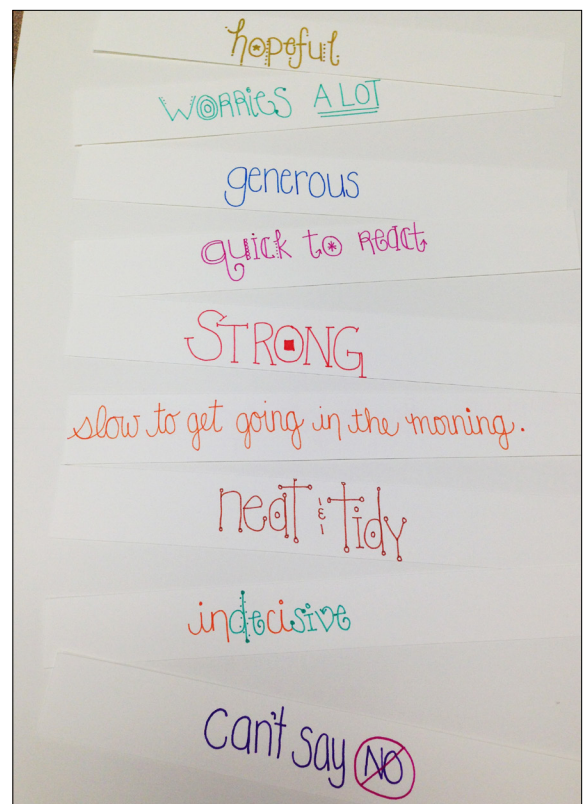 hopeful
WORRIES A LOT
generous
quick to React
STRONG
slow to get going in the morning.
neat & tidy
indecisive
can't say NO